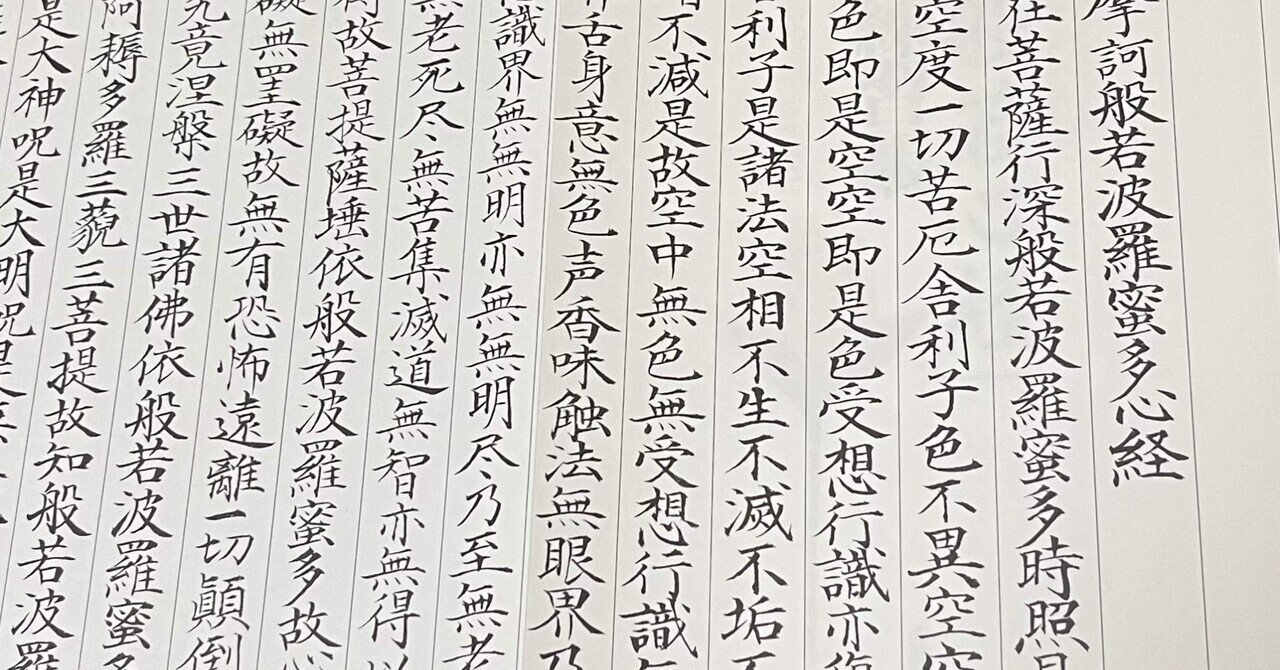 摩訶般若波羅蜜多心経
在菩薩行深般若波羅蜜多時照
空度一切苦厄舎利子色不異空空
色即是空空即是色受想行識亦復
利子是諸法空相不生不滅不垢不
不減是故空中無色無受想行識無
舌身意無色声香味触法無眼界乃
識界無無明亦無無明尽乃至無老
無老死尽無苦集滅道無智亦無得以
故菩提薩埵依般若波羅蜜多故心
礙無罣礙故無有恐怖遠離一切顛倒
究竟涅槃三世諸佛依般若波羅蜜多
阿耨多羅三藐三菩提故知般若波羅
是大神呪是大明呪是